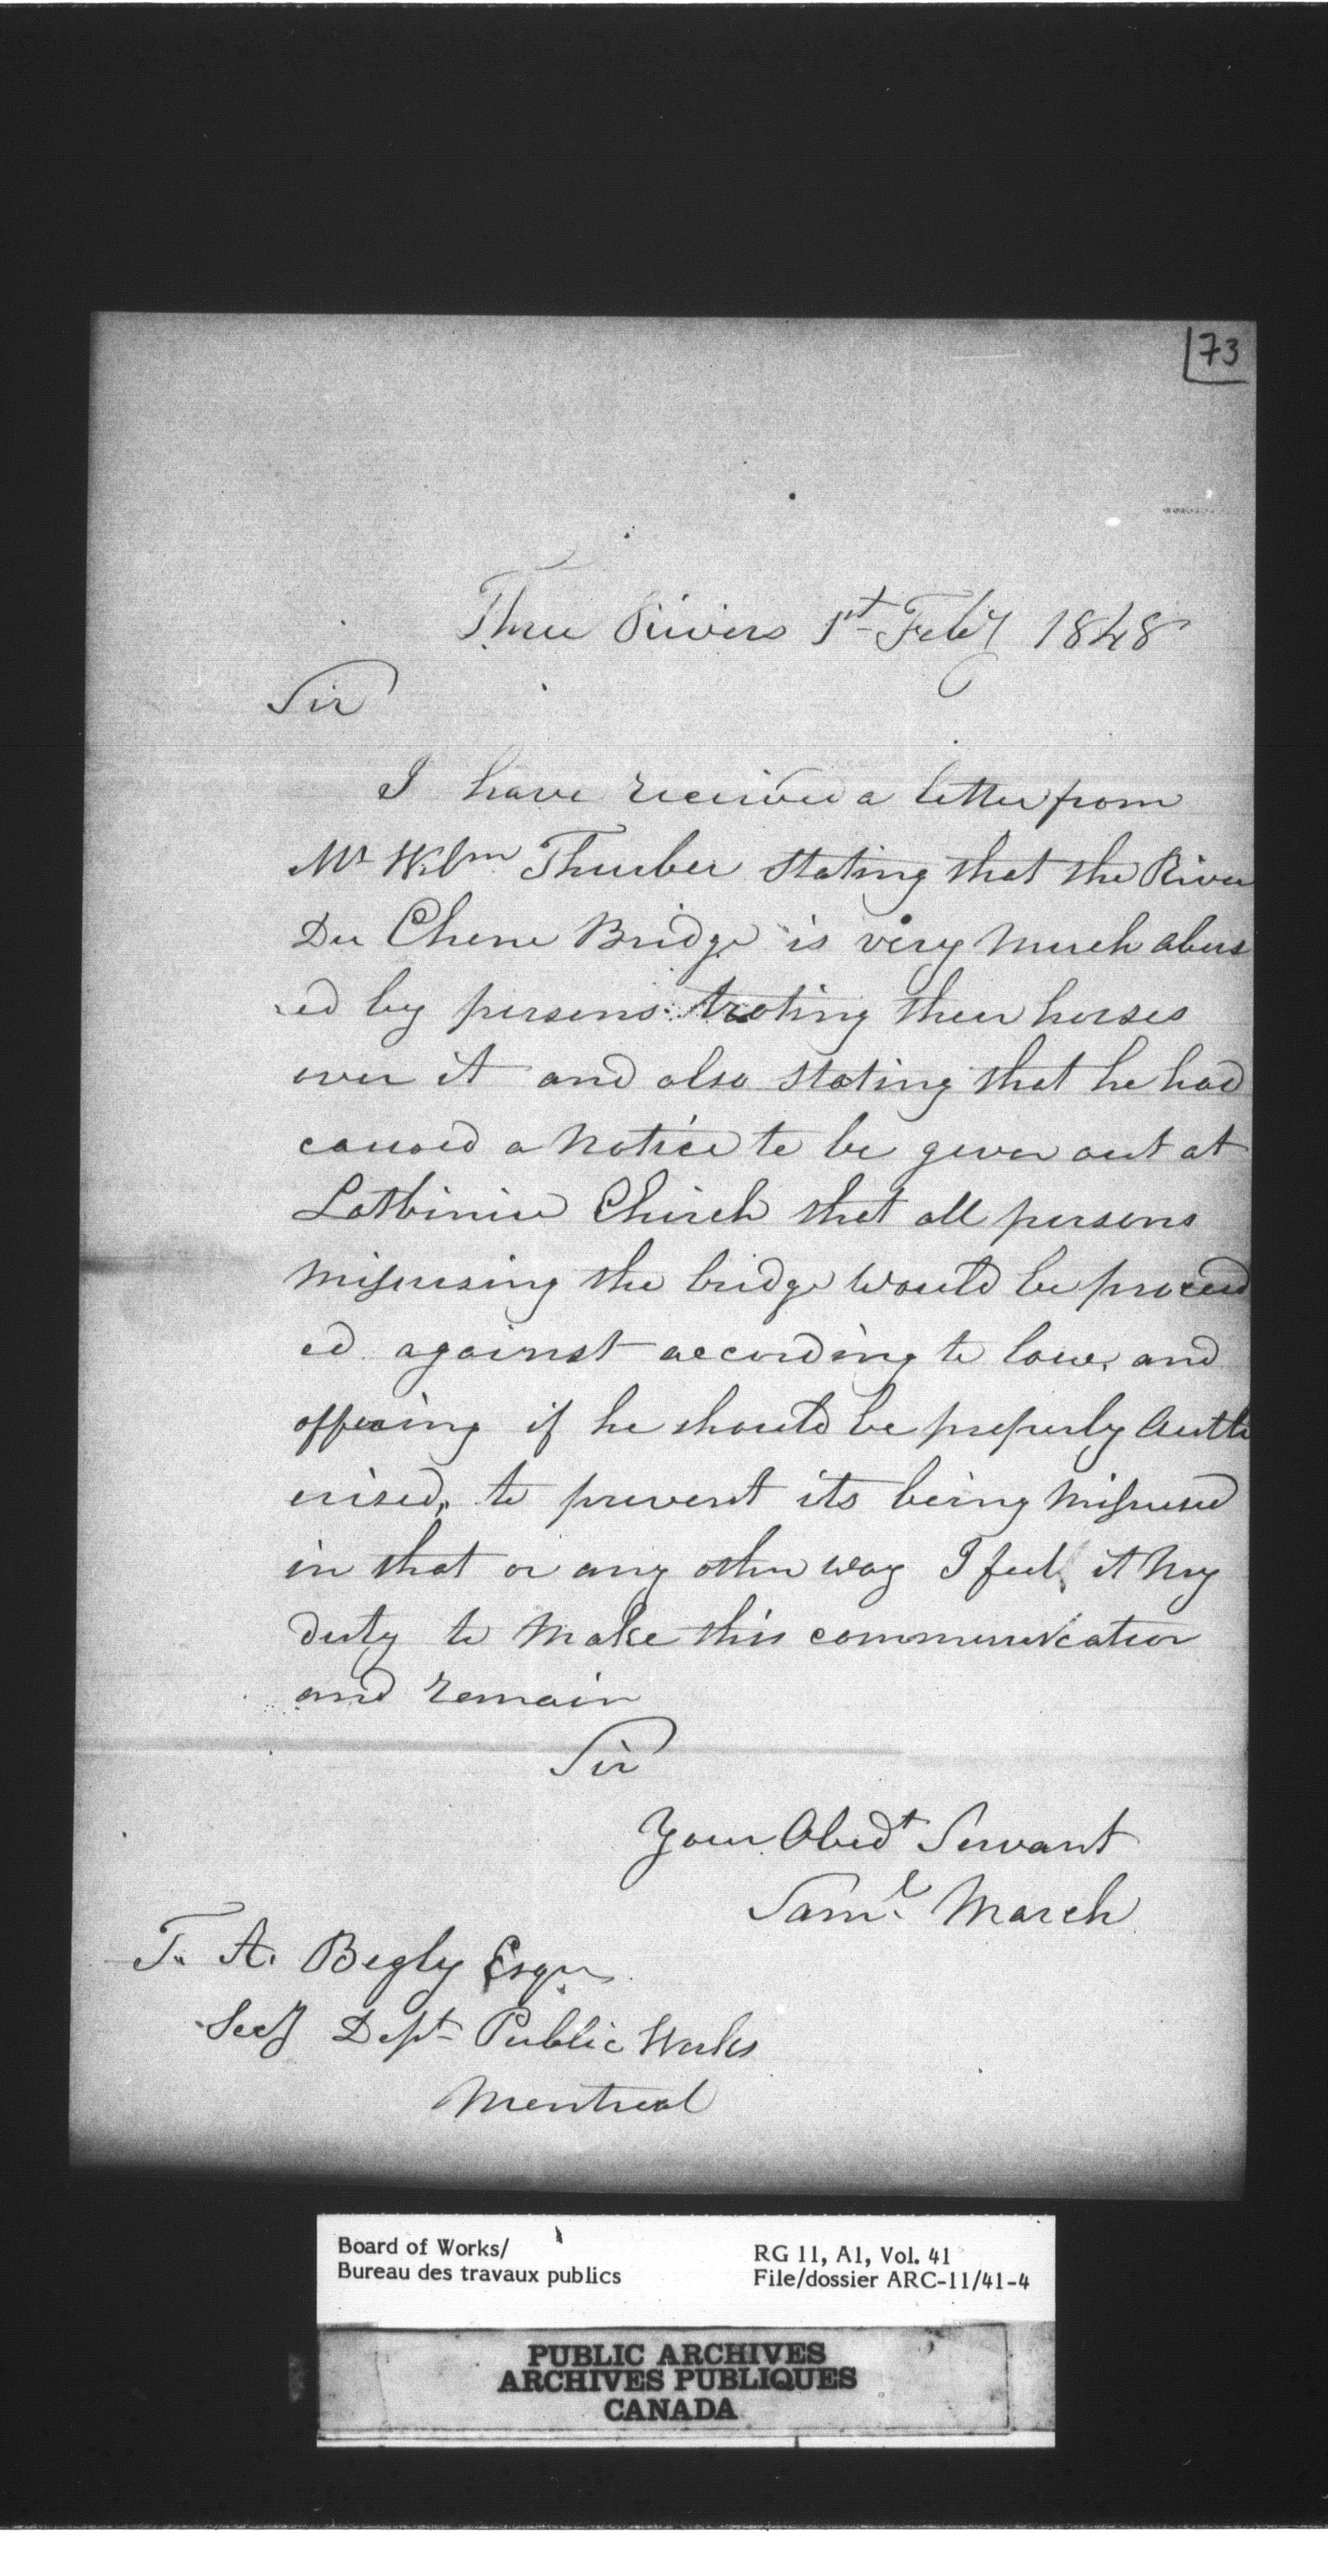 73
Three Rivers 1st Feby 1848
Sir
I have received a letter from
Mr Wilm Thurber stating that the River
Du Chene Bridge is very much abus
ed by persons troting their horses
over it and also stating that he had
caused a notice to be given out at
Lotbinire Chirch that all persons
misusing the bridge would be proceed
ed against according to law, and
offering if he should be properly Autho
erised, to prevent its being misused
in that or any other way I feel it my
duty to make this communication
and remain
Sir
Your Obedt Servant
Saml March
T. A. Begly Esqr
Secy Dept Public Works
Montreal
Board of Works/
Bureau des travaux publics
RG 11, A1, Vol. 41
File/dossier ARC-11/41-4
PUBLIC ARCHIVES
ARCHIVES PUBLIQUES
CANADA